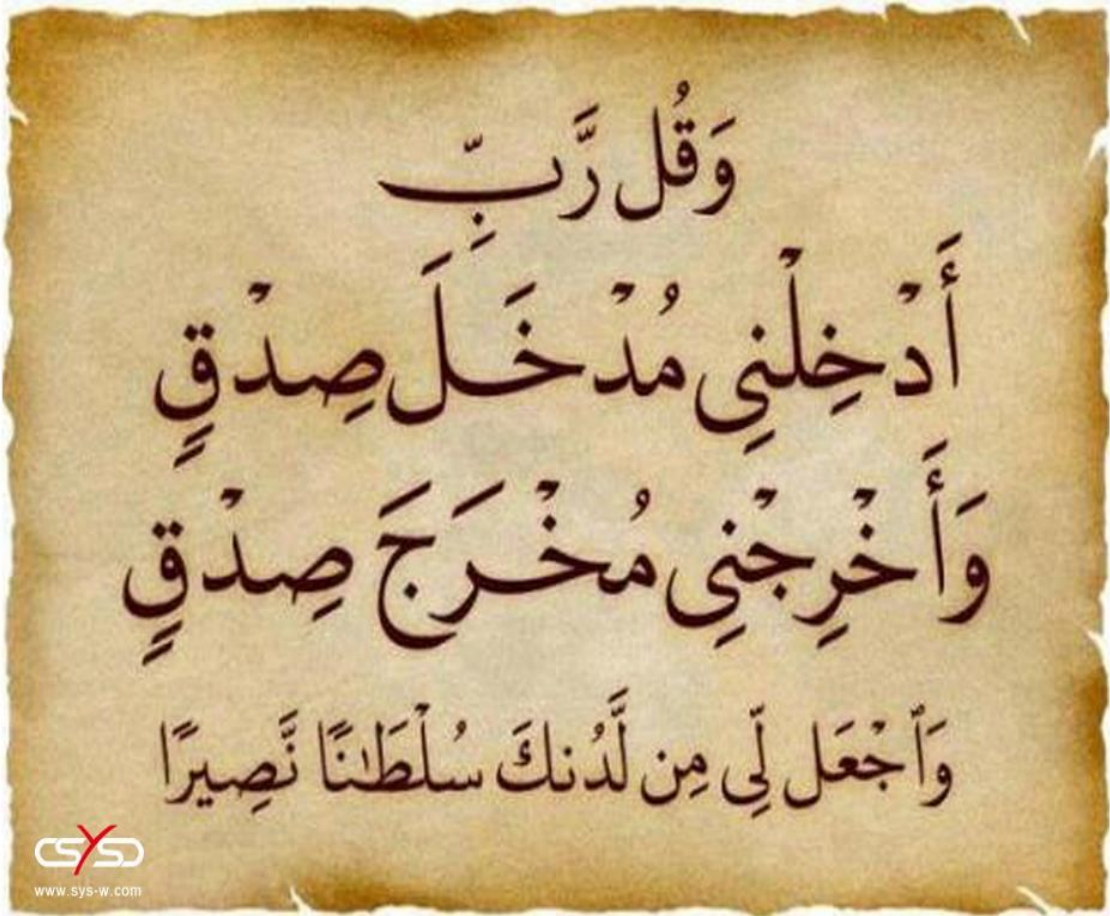 وَقُل رَّبِّ
أَدْخِلْنِي مُدْخَلَ صِدْقٍ
وَأَخْرِجْنِي مُخْرَجَ صِدْقٍ
وَٱجْعَل لِّي مِن لَّدُنكَ سُلْطَـٰنًا نَّصِيرًا
CSYSC
www.sys-w.com